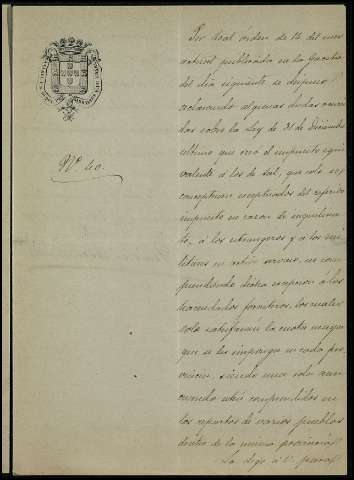 Nº 40.
Por Real orden de 14 del mes
actual publicada en la Gaceta
del dia siguiente se dispuso
aclarando algunas dudas
sobre la Ley de 31 de Diciembre
ultimo que creó el impuesto equi
valente á los de Sal, que solo se
exceptuados del referido
impuesto en razon de inquilina
to, á los estrangeros y á los mi
litares en activo servicio, no com
prendiendo dicha á los
hacendados forasteros, los cuales
solo satisfarán la cuota mayor
que se les imponga en cada pro
vincia, siendo una sola aun
cuando esten comprendidos en
los repartos de varios pueblos
dentro de la misma provincia.
Lo digo á V. para